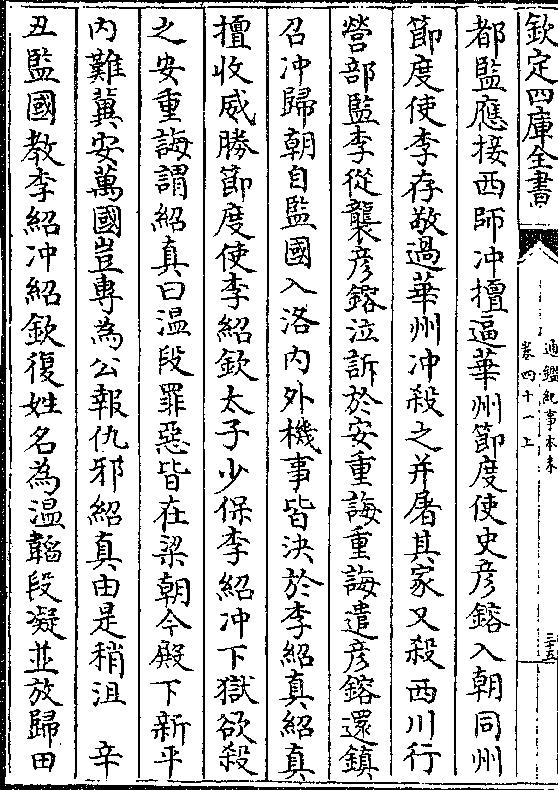 欽定四庫全書
通鑑紀事本末
卷四十一上
三五
都監應接西師冲擅逼華州節度使史彦鎔入朝同州
節度使李存敬過華州冲殺之并屠其家又殺西川行
營部監李從襲彦鎔泣訴於安重誨重誨遣彦鎔還鎮
召冲歸朝自監國入洛内外機事皆決於李紹真紹真
擅收威勝節度使李紹欽太子少保李紹冲下獄欲殺
之安重誨謂紹真曰温段罪惡皆在梁朝今殿下新平
内難冀安萬國豈專為公報仇邪紹真由是稍沮　辛
丑監國教李紹冲紹欽復姓名為温韜段凝並放歸田